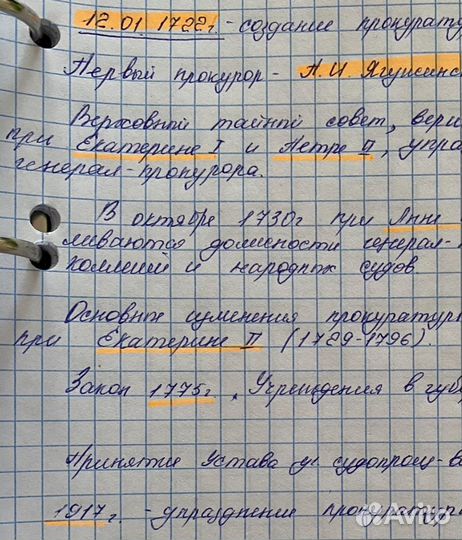 12.01.1722г. - создание прокурату
Первый прокурор - П.И. Ягужинс
Верховный тайный совет, вер
при Екатерине I и Петре II, упра
генерал-прокурора.
В октябре 1730г при Анне
ливаются должности генерал-
коллегий и народных судов
Основные изменения прокуратуры
при Екатерине II (1729-1796).
Закон 1775г. Учреждения в губ
Принятие Устава уг. судопроиз-в
1917г. - упразднение прокуратур
Avito